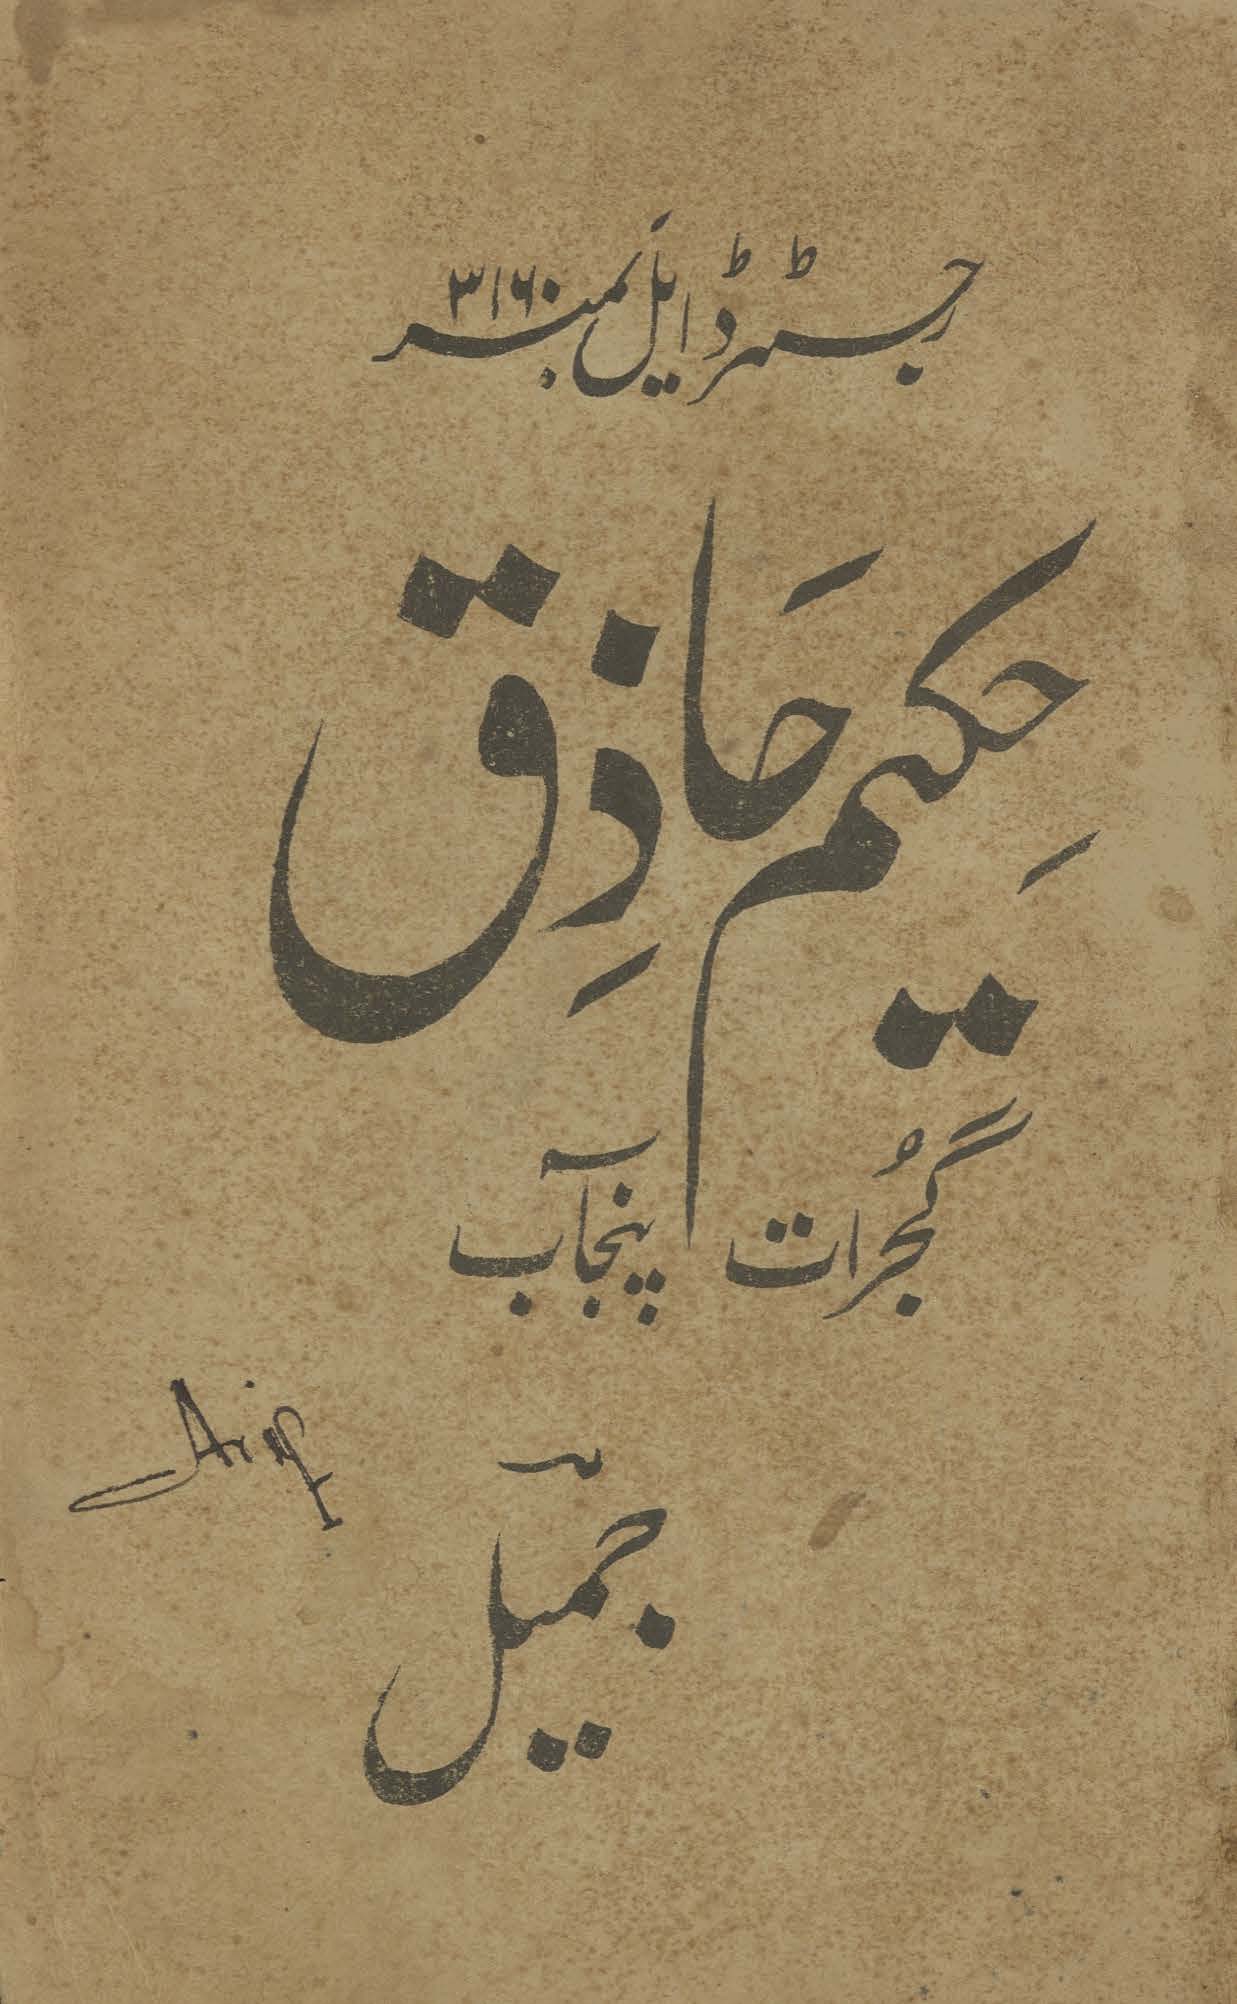 رجسٹرڈ ایل نمبر ۳۱۶۰
حِکیم حَاذِق
گُجرات پنجاب
Arif
جمیل